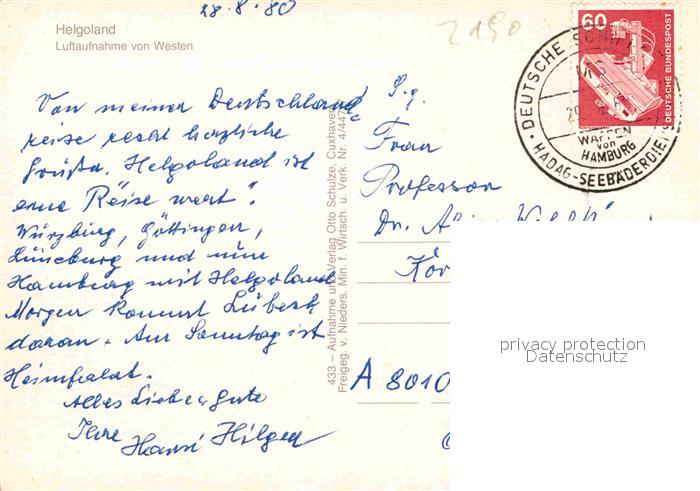 28.8.80
2190
Helgoland
Luftaufnahme von Westen
60
DEUTSCHE BUNDESPOST
DEUTSCHE
WAPPEN
von
HAMBURG
HADAG-SEEBÄDERDIE
Von meiner Deutschland
reise recht herzliche
Grüße. Helgoland ist
eine Reise wert".
Würzburg, Göttingen,
Lüneburg und nun
Hamburg mit Helgoland
Morgen kommt Lübeck
daran. Am Sonntag ist
Heimfahrt.
Alles Liebe & gute
Ihre Hansi Hilger
433 – Aufnahme und Verlag Otto Schulze, Cuxhaven
Freigeg. v. Nieders. Min. f. Wirtsch. u. Verk. Nr. 4/447
S.g.
Frau
Professor
Dr.
Kör
A 8010
privacy protection
Datenschutz